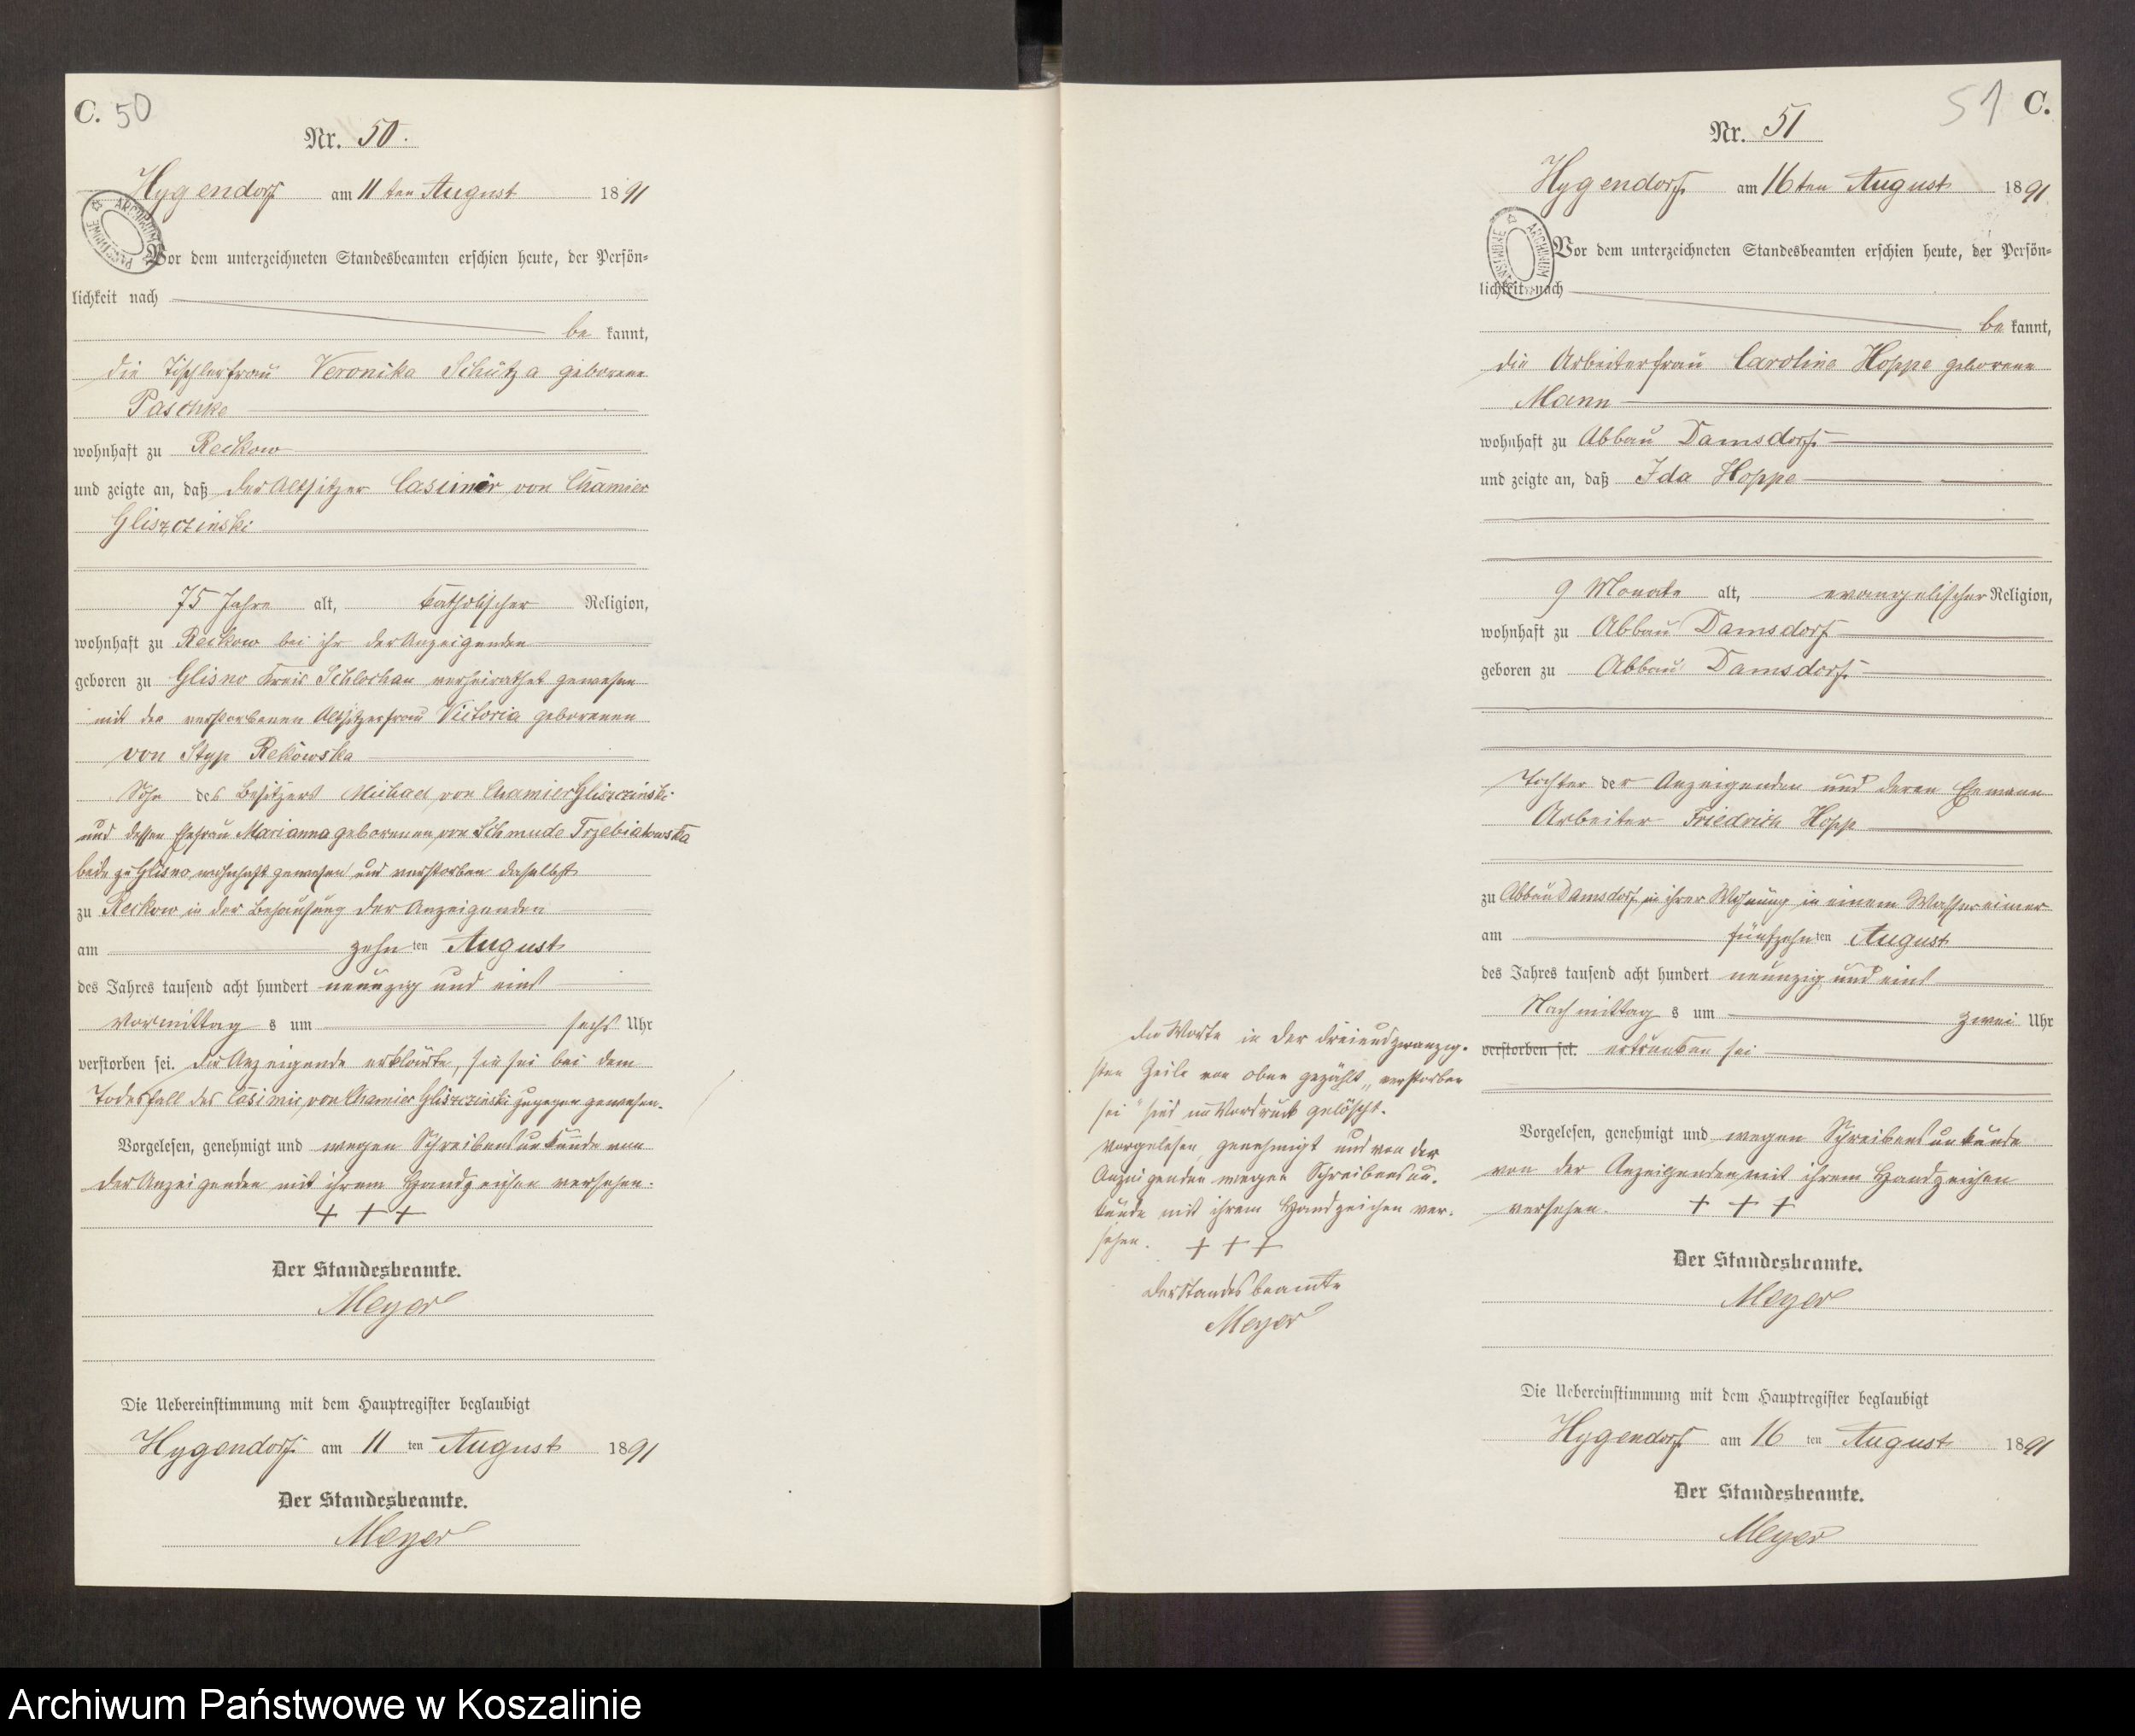 C. 50
Nr. 50.
Hygendorf am 11ten August 1891
Vor dem unterzeichneten Standesbeamten erschien heute, der Persön-
lichkeit nach
be kannt,
die Tischlerfrau Veronika Schütza geborene
Paschke
wohnhaft zu Reckow
und zeigte an, daß der Altsitzer Casimir von Chamier
Gliszczinski
75 Jahre alt, katholischer Religion,
wohnhaft zu Reckow bei ihr der Anzeigenden
geboren zu Glisno Kreis Schlochau verheirathet gewesen
mit der verstorbenen Altsitzerfrau Victoria geborenen
von Styp Rekowska
Sohn des Besitzers Michael von Chamier Gliszczinski
und dessen Ehefrau Marianna geborenen von Schmude Trzebiatowska
beide zu Glisno wohnhaft gewesen und verstorben daselbst
zu Reckow in der Behausung der Anzeigenden
am zehn ten August
des Jahres tausend acht hundert neunzig und eins
Vormittag s um sechs Uhr
verstorben sei. Die Anzeigende erklärte, sie sei bei dem
Todesfall des Casimir von Chamier Gliszczinski zugegen gewesen.
Vorgelesen, genehmigt und wegen Schreibensunkunde von
der Anzeigenden mit ihrem Handzeichen versehen.
+ + +
Der Standesbeamte.
Meyer
Die Uebereinstimmung mit dem Hauptregister beglaubigt
Hygendorf am 11 ten August 1891
Der Standesbeamte.
Meyer
51 C.
Nr. 51
Hygendorf am 16ten August 1891
Vor dem unterzeichneten Standesbeamten erschien heute, der Persön-
lichkeit nach
be kannt,
die Arbeiterfrau Caroline Hoppe geborene
Mann
wohnhaft zu Abbau Damsdorf
und zeigte an, daß Ida Hoppe
9 Monate alt, evangelischer Religion,
wohnhaft zu Abbau Damsdorf
geboren zu Abbau Damsdorf
Tochter der Anzeigenden und deren Ehemann
Arbeiter Friedrich Hopp
zu Abbau Damsdorf in ihrer Wohnung in einem Wassereimer
am fünfzehn ten August
des Jahres tausend acht hundert neunzig und eins
Nachmittag s um zwei Uhr
verstorben sei. ertrunken sei
Vorgelesen, genehmigt und wegen Schreibensunkunde
von der Anzeigenden mit ihrem Handzeichen
versehen. + + +
Der Standesbeamte.
Meyer
Die Uebereinstimmung mit dem Hauptregister beglaubigt
Hygendorf am 16 ten August 1891
Der Standesbeamte.
Meyer
Die Worte in der dreiundzwanzig-
sten Zeile von oben gezählt „verstorben
sei" sind im Vordruck gelöscht.
Vorgelesen, genehmigt und von der
Anzeigenden wegen Schreibensun-
kunde mit ihrem Handzeichen ver-
sehen. + + +
Der Standesbeamte
Meyer
Archiwum Państwowe w Koszalinie